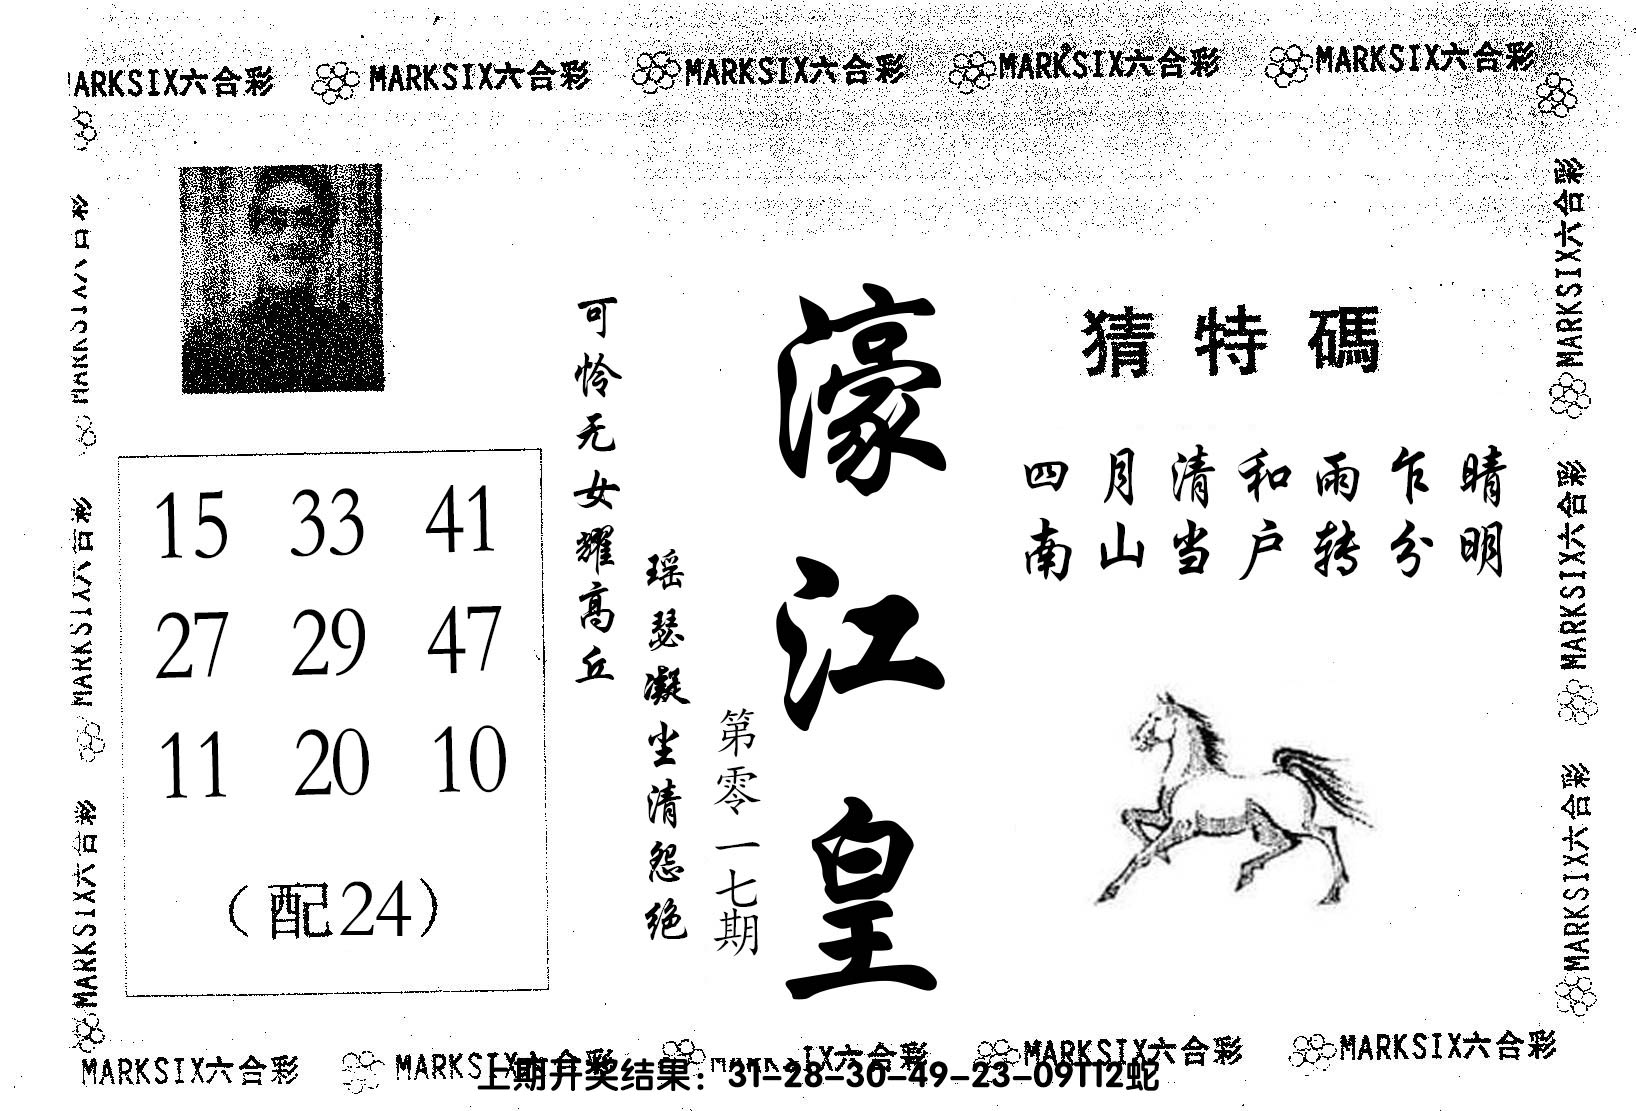 MARKSIX六合彩 MARKSIX六合彩 MARKSIX六合彩 MARKSIX六合彩 MARKSIX六合彩
猜特碼
四月清和雨乍晴
南山当户转分明
濠江皇
第零一七期
可怜无女耀高丘
瑶瑟凝尘清怨绝
15 33 41
27 29 47
11 20 10
（配24）
MARKSIX六合彩
MARKSIX六合彩
MARKSIX六合彩
MARKSIX六合彩
MARKSIX六合彩
MARKSIX六合彩
MARKSIX六合彩 MARKSIX六合彩 MARKSIX六合彩 MARKSIX六合彩 MARKSIX六合彩
上期开奖结果：31-28-30-49-23-09T12蛇